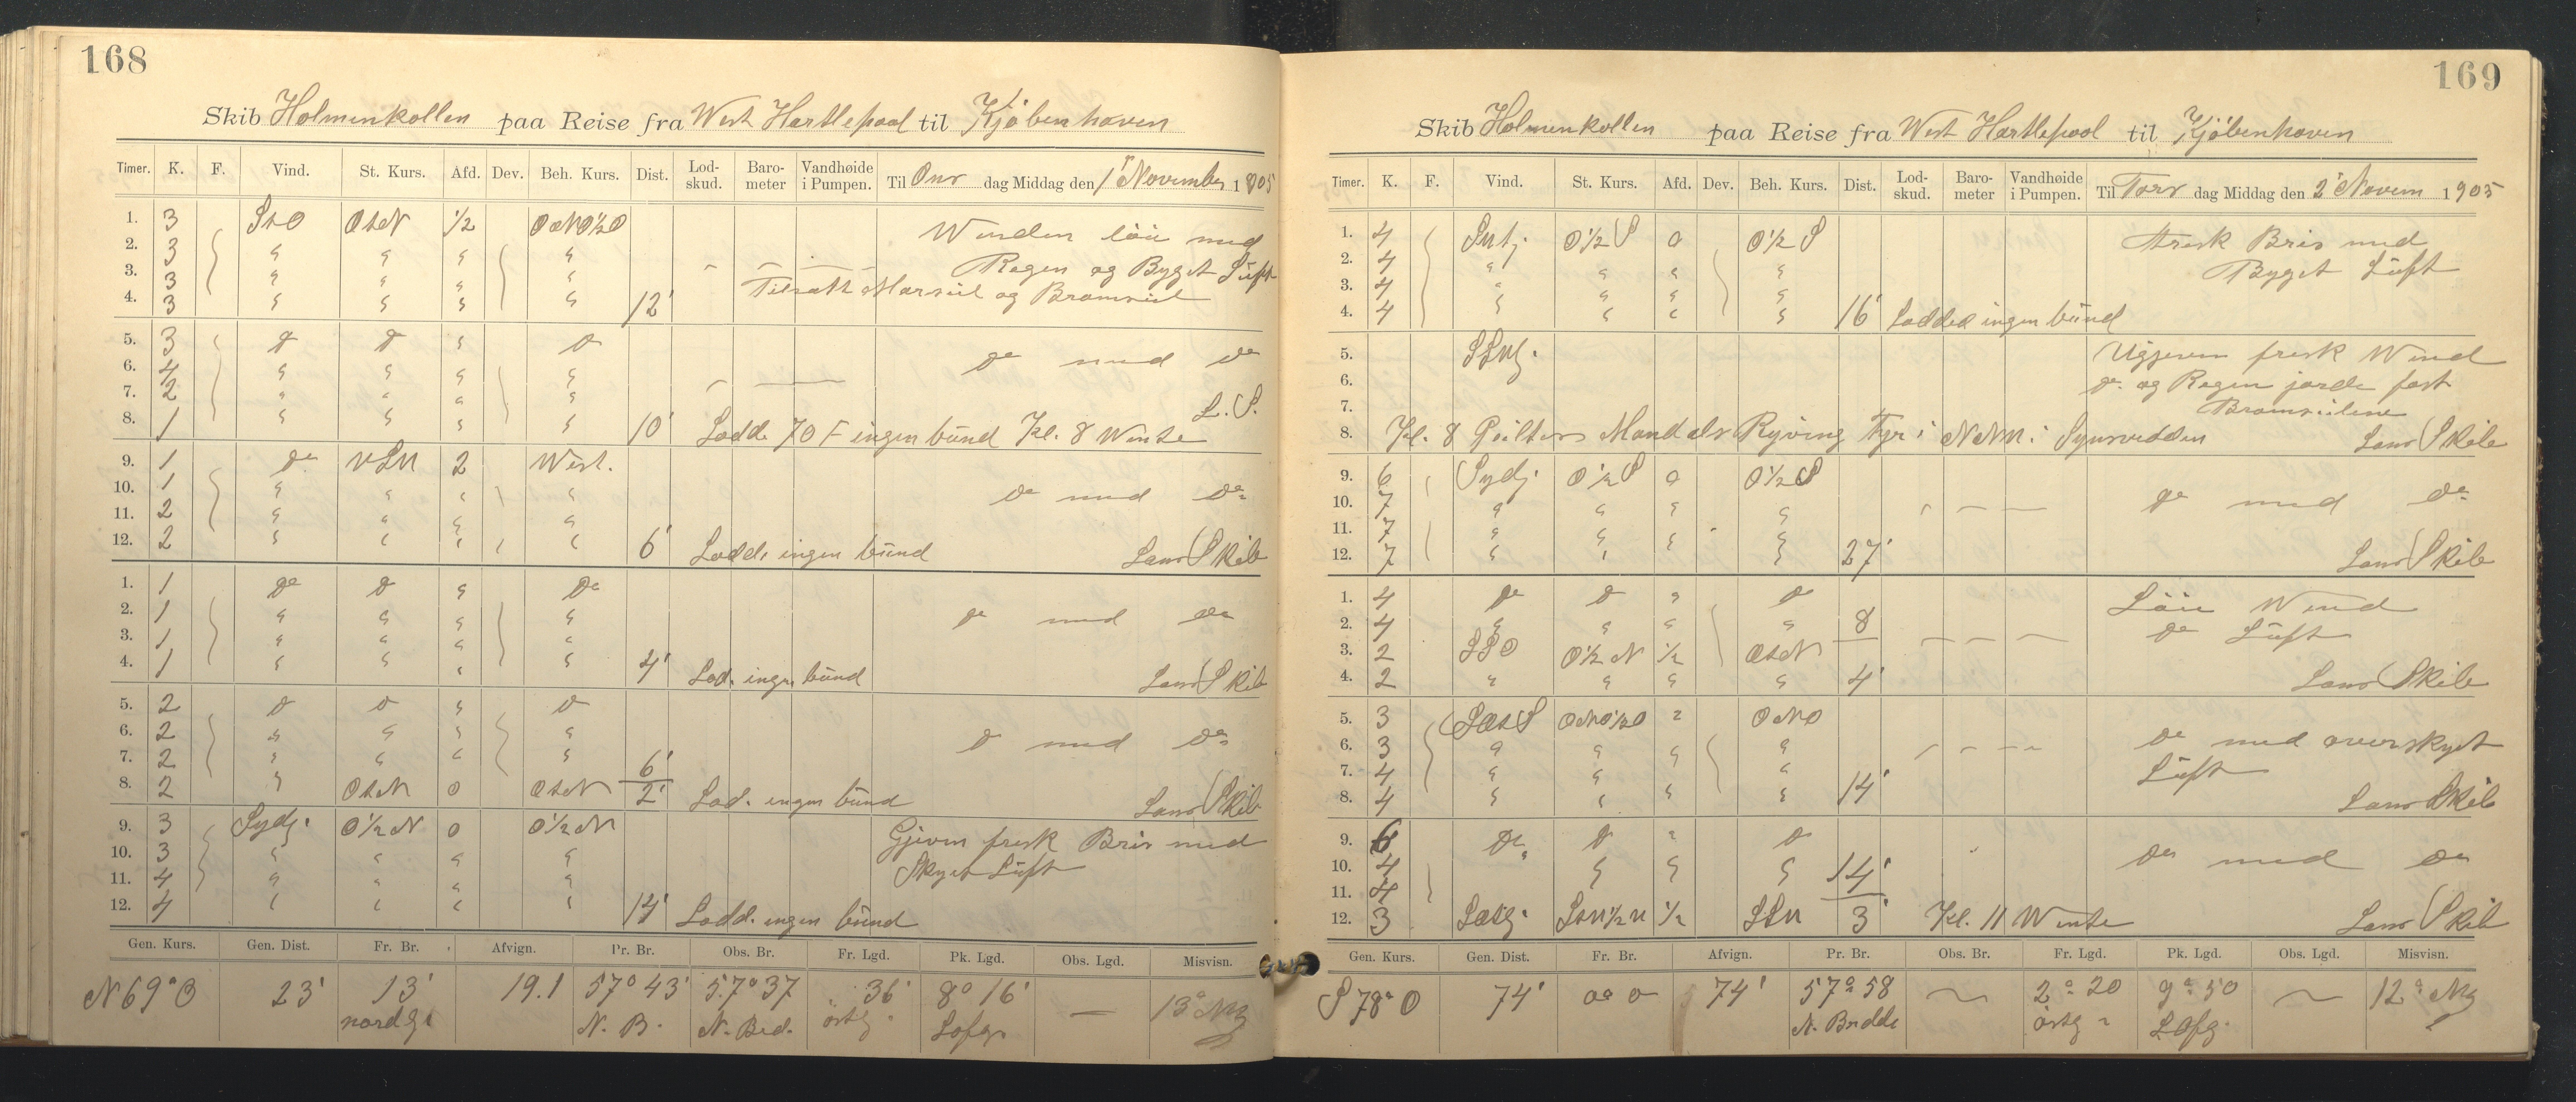 168
Skib Holmenkollen paa Reise fra West Hartlepool til Kjöbenhaven
Timer. K. F. Vind. St. Kurs. Afd. Dev. Beh. Kurs. Dist. Lod-skud. Baro-meter Vandhøide i Pumpen. Til Ons dag Middag den 1 November 1905
1. 3 StO OtN 1/2 ONO1/2O Winden löie med
2. 3 " " " " Regen og Byget Luft
3. 3 " " " " Tilsatt Marseil og Bramseil
4. 3 " " " " 12'
5. 3 do do " do do med do
6. 4 " " " "
7. 2 " " " " L. S.
8. 1 " " " " 10' Lodde 70 F ingen bund Kl. 8 Wente
9. 1 do VSV 2 West.
10. 1 " " " " do med do
11. 2 " " " "
12. 2 " " " " 6' Lodde ingen bund Lans Skib
1. 1 do do " do
2. 1 " " " " do med do
3. 1 " " " "
4. 1 " " " 4' Lod. ingen bund Lans Skib
5. 2 do do " do
6. 2 " " " " do med do
7. 2 " " " " 6'
8. 2 " OtN 0 OtN 2' Lod. ingen bund Lans Skib
9. 3 Sydl. O1/2N 0 O1/2N Gjeven fresk Bris med
10. 3 " " " " Skyet Luft
11. 4 " " " "
12. 4 " " " " 14' Lodd. ingen bund
Gen. Kurs. Gen. Dist. Fr. Br. Afvign. Pr. Br. Obs. Br. Fr. Lgd. Pk. Lgd. Obs. Lgd. Misvisn.
N 69° O 23' 13' 19.1 57° 43' 57° 37 36' 8° 16' — 13°
nordg. N. B. N. Bred. östg.
169
Skib Holmenkollen paa Reise fra West Hartlepool til Kjöbenhaven
Timer. K. F. Vind. St. Kurs. Afd. Dev. Beh. Kurs. Dist. Lod-skud. Baro-meter Vandhøide i Pumpen. Til Tors dag Middag den 2 Novem 1905
1. 4 O1/2S 0 O1/2S Fresk Bris med
2. 4 " " " " Byget Luft
3. 4 " " " "
4. 4 " " " " 16' Lodded ingen bund
5. fresk Wind
6. do og Regen jorde fast
7. Bramseilene
8. Kl. 8 Mandals Ryving Fyr i NNV. i Synsvidden Lans Skib
9. 6 Sydl. O1/2S 0 O1/2S
10. 7 " " " " do med do
11. 7 " " " "
12. 7 " " " " 27' Lans Skib
1. 4 do do " do Löie Wind
2. 4 " " " " 8 do Luft
3. 2 SSO O1/2N 1/2 OtN
4. 2 " " " " 4' Lans Skib
5. 3 ONO1/2O " ONO
6. 3 " " " " do med overskyet
7. 4 " " " " Luft
8. 4 " " " " 14' Lans Skib
9. 6 do do " do
10. 4 " " " 14' do med do
11. 4
12. 3 1/2 SSV 3' Kl. 11 Wente Lans Skib
Gen. Kurs. Gen. Dist. Fr. Br. Afvign. Pr. Br. Obs. Br. Fr. Lgd. Pk. Lgd. Obs. Lgd. Misvisn.
S 78° O 74' 0° 0 74' 57° 58 — 2° 20 9° 50 — 12°
N. Bredde östg